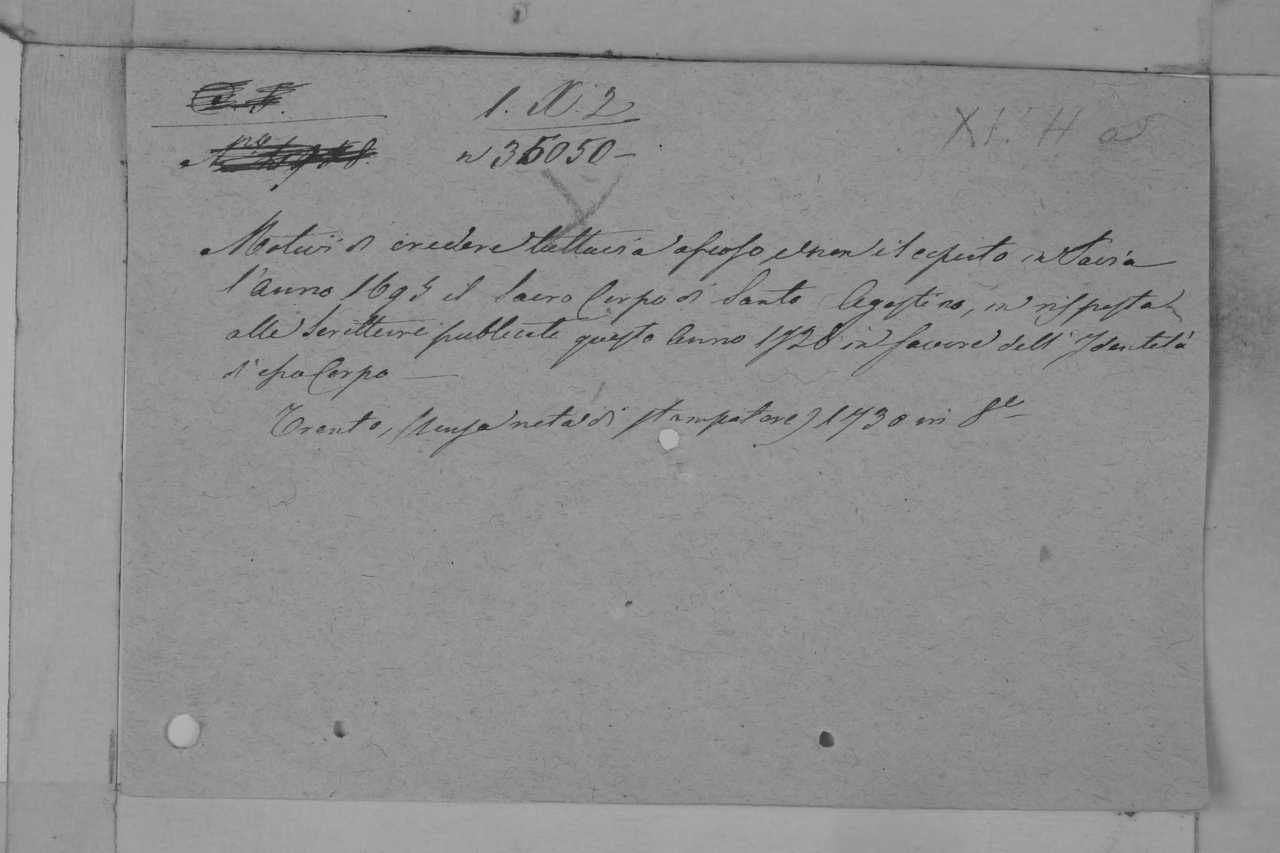 1. X. 2
XI. H a
n 35050 –
Motivi di credere tuttavia ascoso e non iscoperto in Pavia
l'Anno 1695 il Sacro Corpo di Santo Agostino, in risposta
alle scritture publicate questo Anno 1728 in favore dell' Identità
d'esso Corpo —
Trento, (senza nota di stampatore) 1730 in 8º